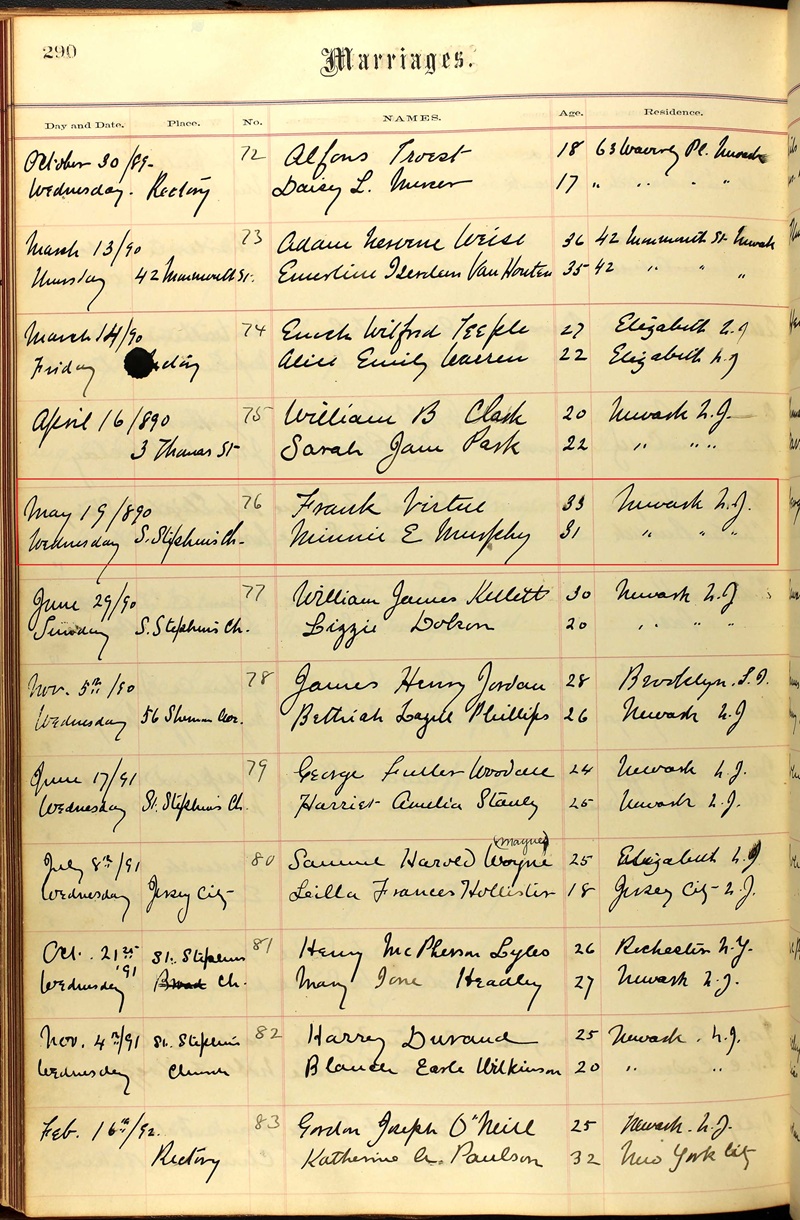 290
Marriages.
Day and Date. Place. No. NAMES. Age. Residence.
October 30/89- 72 Alfons Troest 18 63 Waverly Pl. Newark
Wednesday. Rectory Daisy L. Mercer 17 " " " "
March 13/90 73 Adam Weise 36 42 Monmouth St. Newark
Thursday 42 Monmouth St. Emerline Van Houten 35 42 " " "
March 14/90 74 Enoch Wilfred Teeple 27 Elizabeth N.J
Friday Alice Emily Warren 22 Elizabeth N.J
April 16/890 75 William B Clark 20 Newark N.J.
3 Thomas St Sarah Jane Park 22 " " "
May 19/890 76 Frank Virtue 33 Newark N.J.
Wednesday S. Stephens Ch- Minnie E Murphy 31 " " "
June 29/90 77 William James Kellett 30 Newark N.J
Sunday S. Stephen's Ch. Lizzie Dobson 20 " " " "
Nov. 5th/90 78 James Henry Jordan 28 Brooklyn. L.I.
Wednesday 56 Sherman Ave. Bethiah Lazell Phillips 26 Newark N.J
June 17/91 79 George Fuller Woodall 24 Newark N.J.
Wednesday St. Stephens Ch. Harriet Amelia Stanly 25 Newark N.J.
(Mayne)
July 8th/91 80 Samuel Harold Wayne 25 Elizabeth N.J
Wednesday Jersey City Leilla Frances Hollister 18 Jersey City N.J.
Oct. 21st St. Stephens 81 Henry McPherson Lyles 26 Rochester N.Y.
'91
Wednesday Broad Ch. Mary Ione Headley 27 Newark N.J.
Nov. 4th/91 St. Stephens 82 Harrey Durand 25 Newark. N.J.
Wednesday Church Blanch Earle Wilkinson 20 " "
Feb. 16th/92. 83 Gordon Joseph O'Neill 25 Newark. N.J.
Rectory Katherine A. Paulson 32 New York City